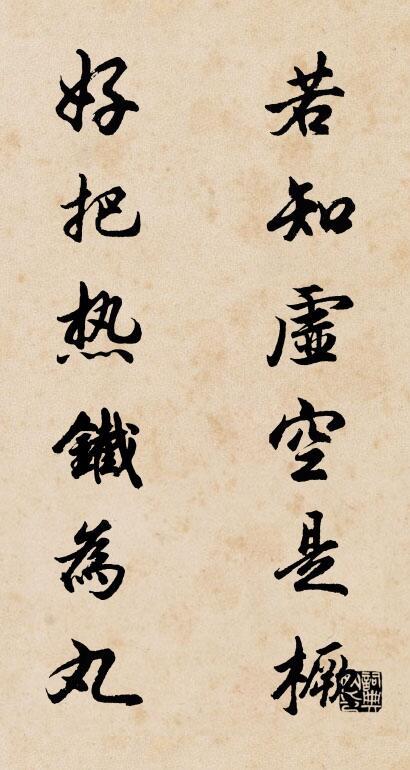 若知虛空是橛
好把热鐵為丸